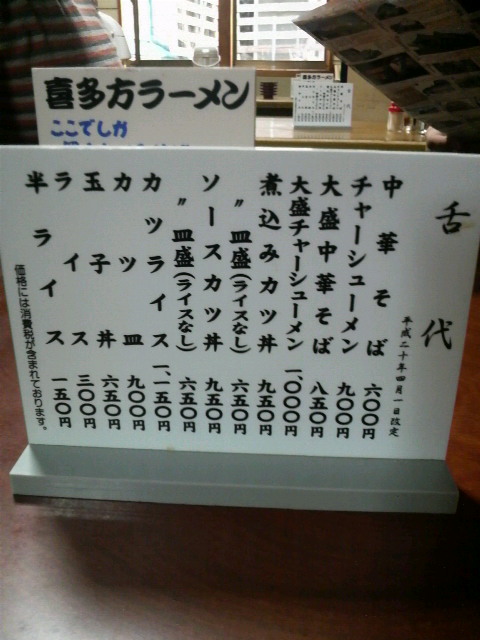 舌代
平成二十年四月一日改定
中華そば 六〇〇円
チャーシューメン 九〇〇円
大盛中華そば 八五〇円
大盛チャーシューメン 一、〇〇〇円
煮込みカツ丼 九五〇円
〃皿盛(ライスなし) 六五〇円
ソースカツ丼 九五〇円
〃皿盛(ライスなし) 六五〇円
カツライス 一、一五〇円
カツ皿 九〇〇円
玉子丼 六五〇円
ライス 三〇〇円
半ライス 一五〇円
価格には消費税が含まれております。
喜多方ラーメン
ここでしか